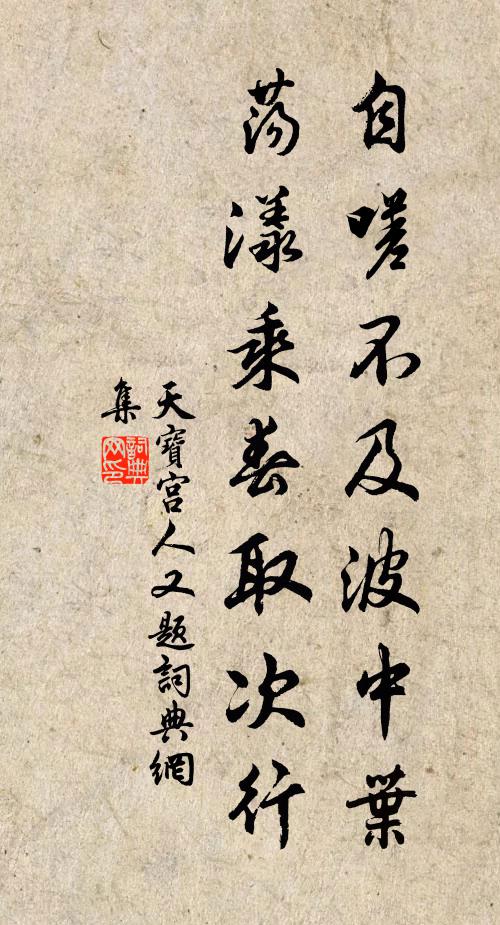 自嗟不及波中葉
荡漾乘春取次行
天寶宮人又題詞典網
集
詞典
网印